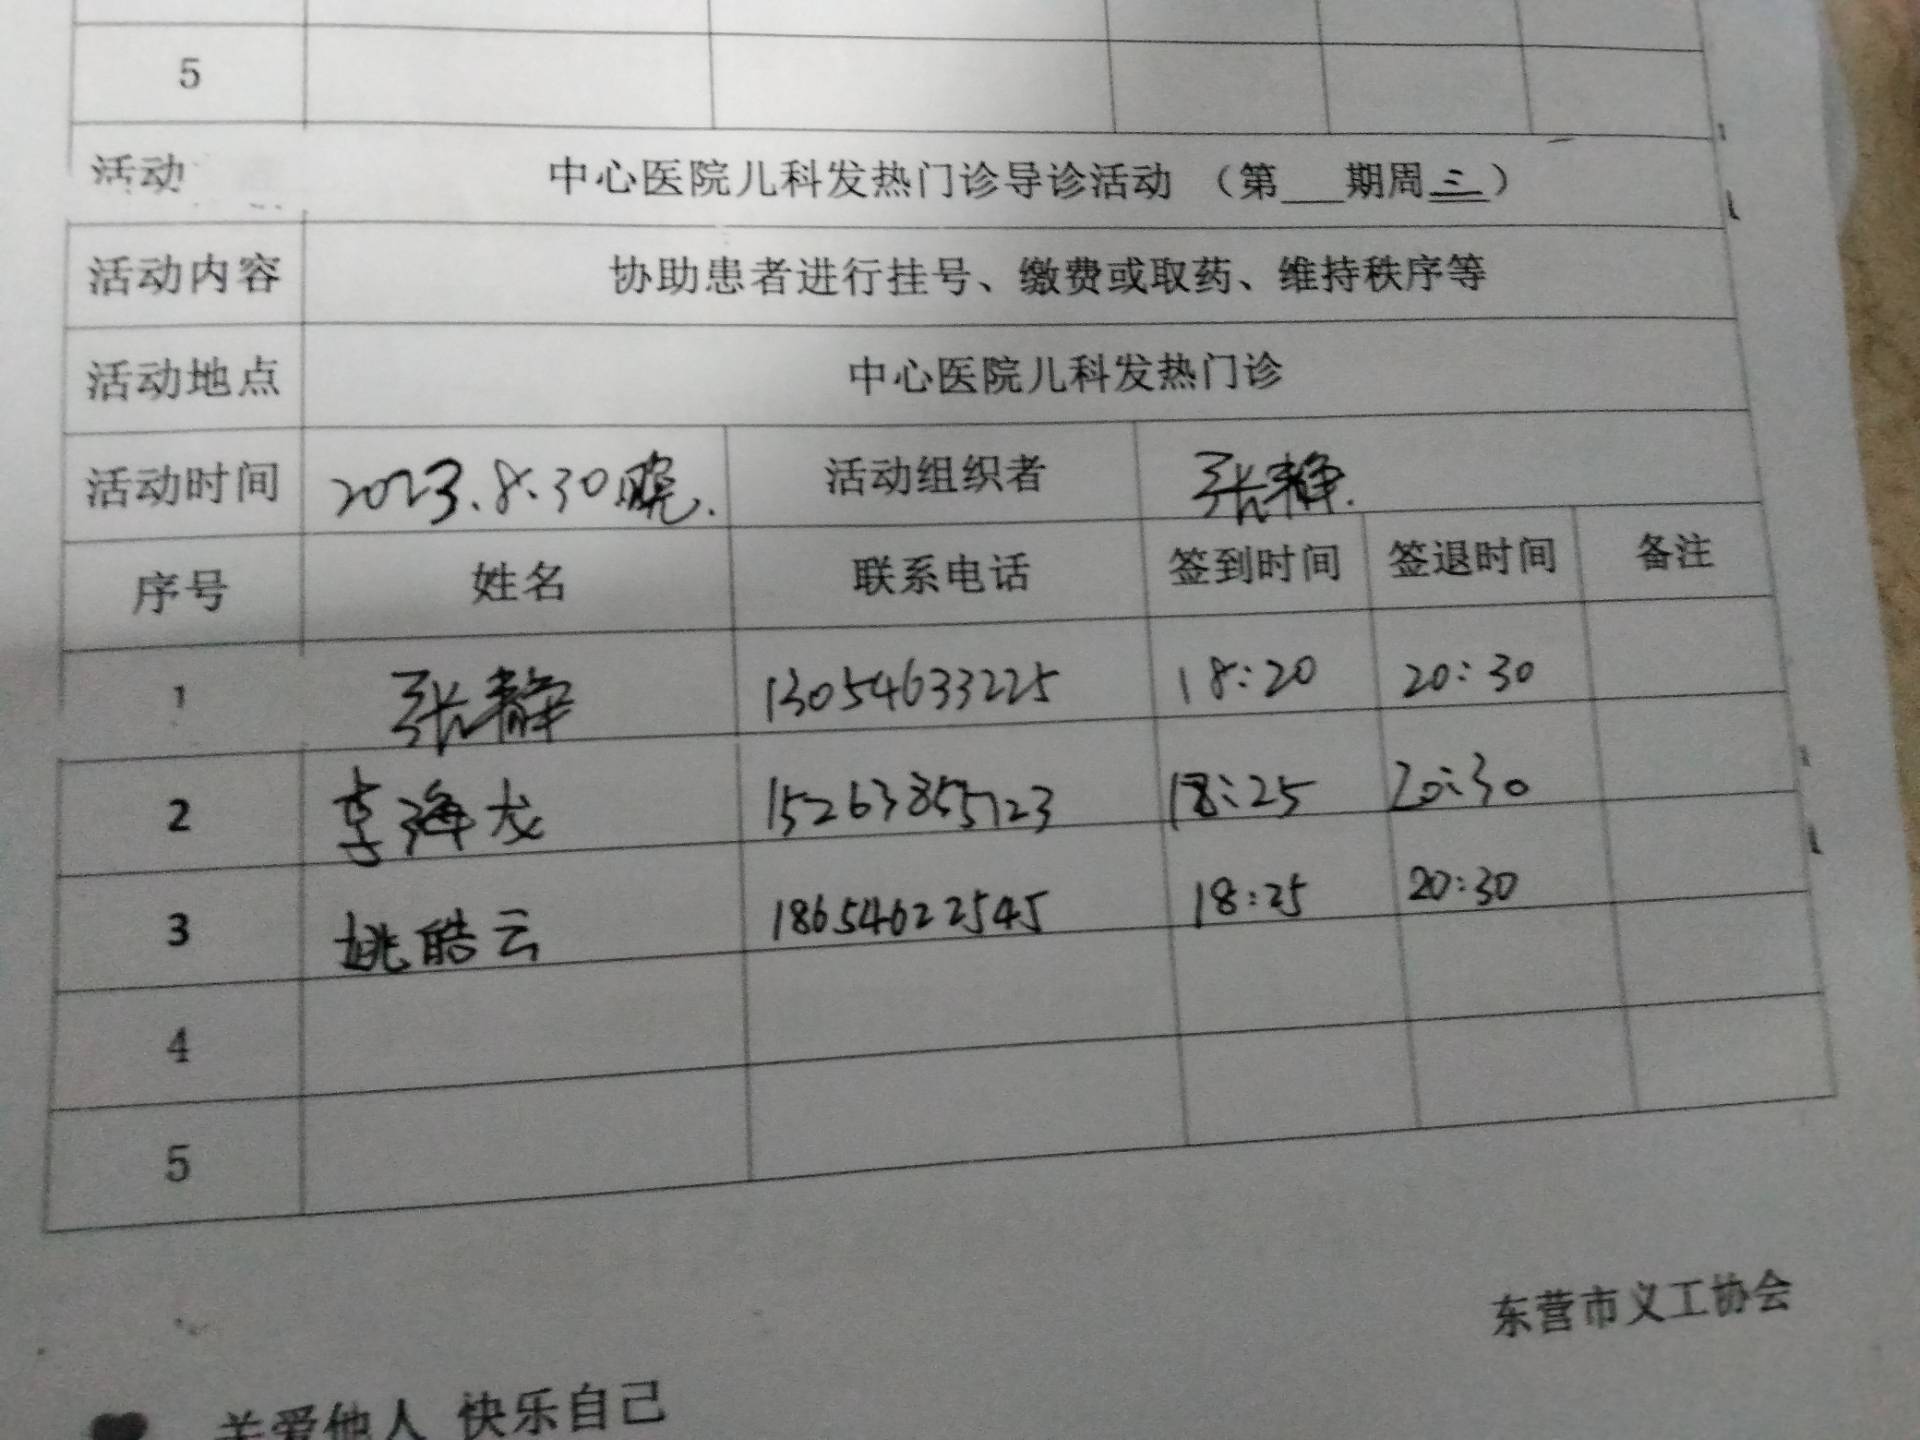 5
活动 中心医院儿科发热门诊导诊活动 （第___期周三）
活动内容 协助患者进行挂号、缴费或取药、维持秩序等
活动地点 中心医院儿科发热门诊
活动时间 2023.8.30晚. 活动组织者 张静.
序号 姓名 联系电话 签到时间 签退时间 备注
1 张静 13054633225 18:20 20:30
2 李海龙 15263855723 18:25 20:30
3 姚皓云 18654622545 18:25 20:30
4
5
东营市义工协会
关爱他人 快乐自己